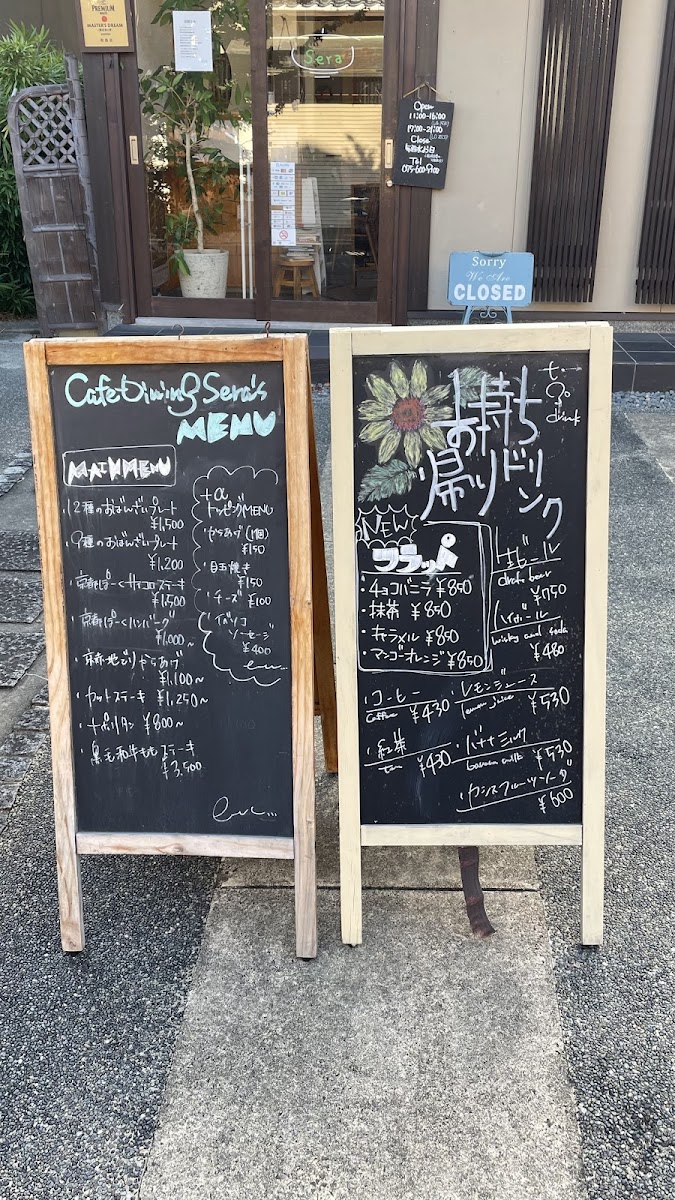 PREMIUM
MASTER'S DREAM
Sera
Open
11:00-16:00
17:00-21:00
Close
Tel
Sorry
We Are
CLOSED
Cafe Dining Sera's
MENU
MAIN MENU
・12種のおばんざいプレート
¥1,500
・9種のおばんざいプレート
¥1,200
・京都ぽーくサイコロステーキ
¥1,500
・京都ぽーくハンバーグ
¥1,000~
・京都地どりからあげ
¥1,100~
・カットステーキ ¥1,250~
・ナポリタン ¥800~
・黒毛和牛もも ステーキ
¥3,500
etc...
+α
トッピングMENU
・からあげ(1個)
¥150
・目玉焼き
¥150
・チーズ ¥100
・イベリコ
ソーセージ
¥400
etc...
お持ち
帰りドリンク
to go
drink
NEW
フラッペ
・チョコバニラ ¥850
・抹茶 ¥850
・キャラメル ¥850
・マンゴーオレンジ ¥850
・生ビール
draft beer
¥750
・ハイボール
wisky and soda
¥480
・コーヒー
coffee ¥430
・レモンジュース
lemon juice ¥530
・紅茶
tea ¥430
・バナナミルク
banana milk ¥530
・カシスフルーツソーダ
¥600